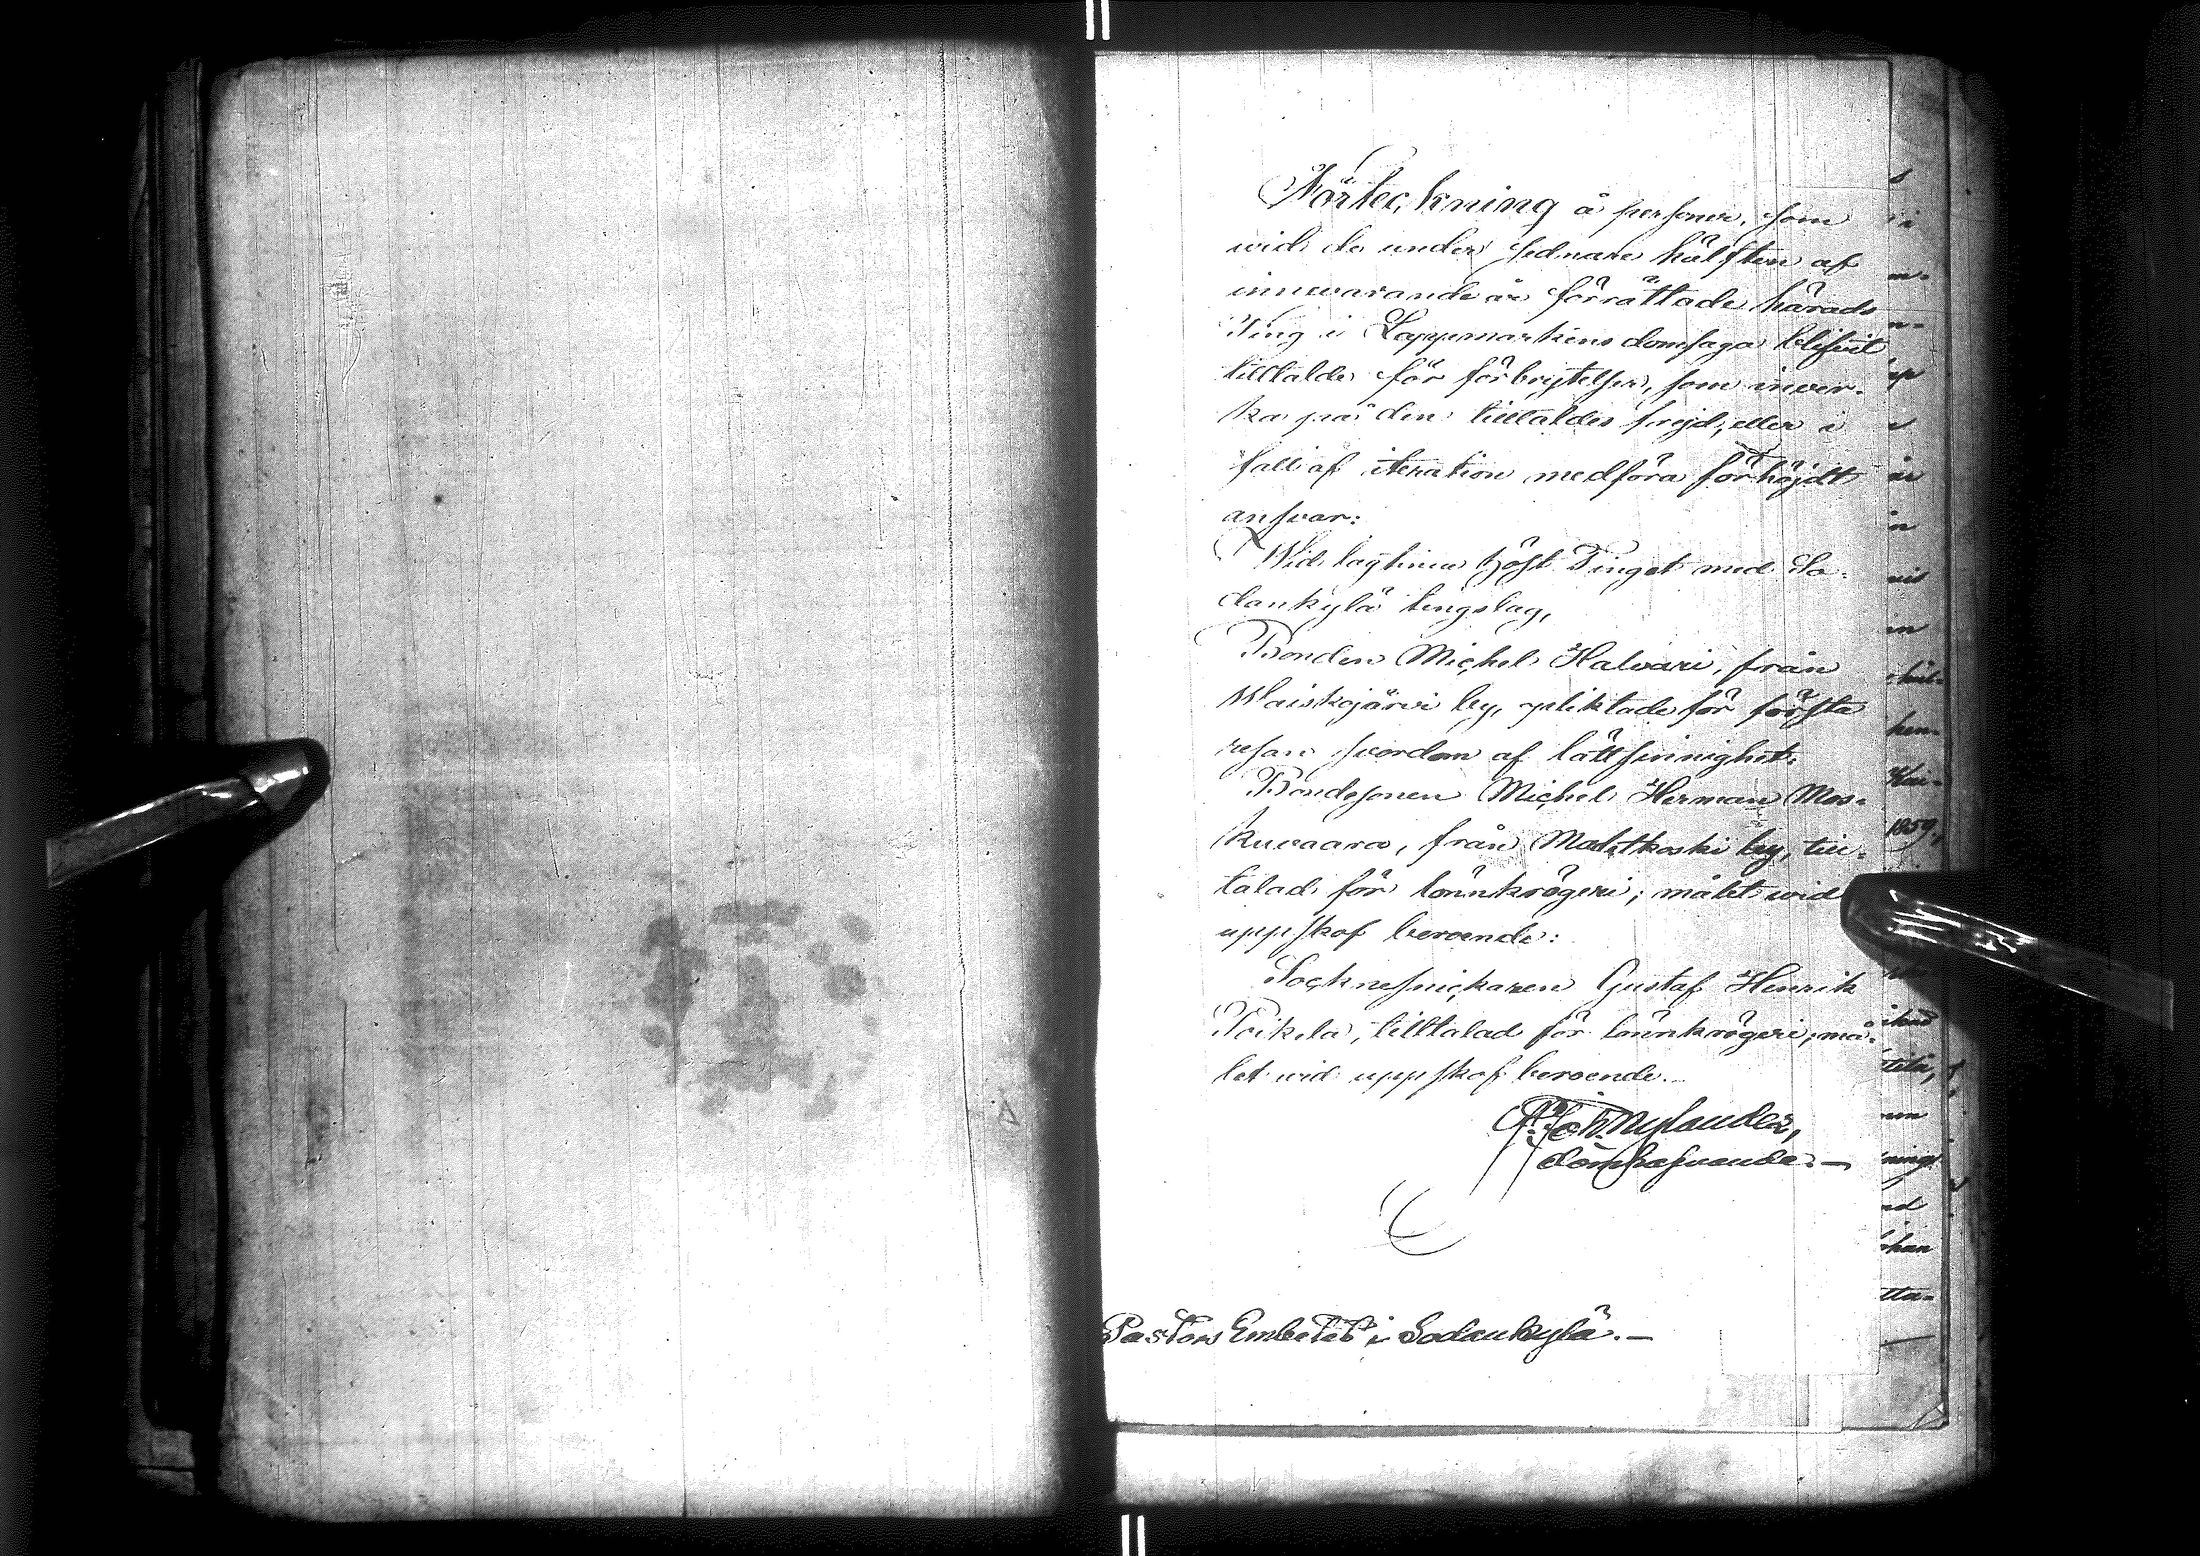 Förteckning å personer, som
wid de under sednare hälften af
innewarande år förrättade härads
Ting i Lappmarkens domsaga blifvit
tilltalde för förbrytelser, som inver-
ka på den tilltaldes frejd, eller i
fall af iteration medföra förhöjdt
ansvar:
Wid lagtima höst Tinget med So-
dankylä tingslag,
Bonden Michel Halvari, från
Waiskojärvi by, pliktade för första
resan svordom af lättsinnighet.
Bondesonen Michel Herman Mos-
kuvaara, från Matatkoski by, till-
talad för lönnkrögeri; målet wid
uppskof beroende:
Socknesnickaren Gustaf Henrik
Poikela, tilltalad för lönnkrögeri; må-
let wid uppskof beroende.
Nylander,
domhafvande.—
Pastors Embetet i Sodankylä.—
1859,